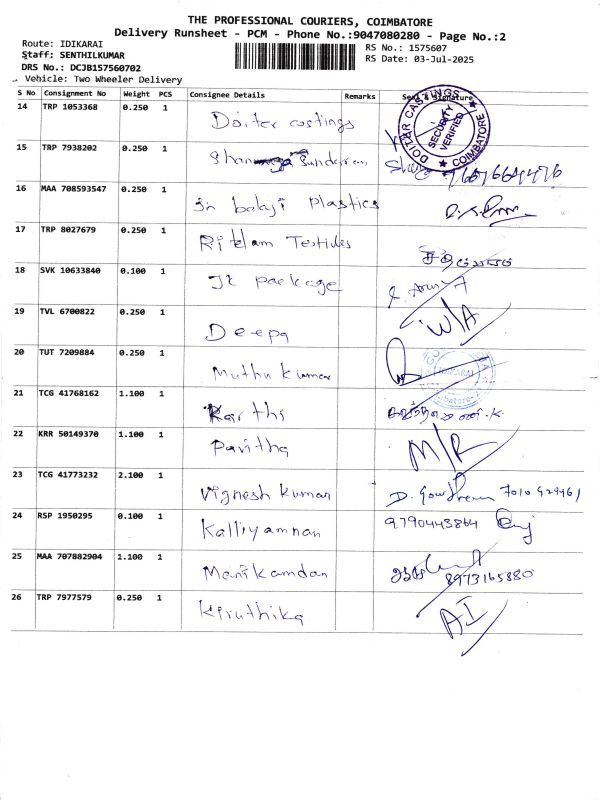 THE PROFESSIONAL COURIERS, COIMBATORE
Delivery Runsheet - PCM - Phone No.:9047080280 - Page No.:2
Route: IDIKARAI
Staff: SENTHILKUMAR
DRS No.: DCJB157560702
Vehicle: Two Wheeler Delivery
RS No.: 1575607
RS Date: 03-Jul-2025
S No Consignment No Weight PCS Consignee Details Remarks Seal & Signature
14 TRP 1053368 0.250 1 Doiter castings
DOITAR CASTINGS ★ COIMBATORE ★
SECURITY VERIFIED
15 TRP 7938202 0.250 1 Sundaram
16 MAA 708593547 0.250 1 Sri balaji plastics
17 TRP 8027679 0.250 1
18 SVK 10633840 0.100 1 JK package
19 TVL 6700822 0.250 1 Deepa W/A
20 TUT 7209884 0.250 1 Muthu kumar
21 TCG 41768162 1.100 1 Karthi
22 KRR 50149370 1.100 1 Pavitha M/R
23 TCG 41773232 2.100 1 Vignesh kumar
24 RSP 1950295 0.100 1 Kalliyamnan 9790443864
25 MAA 707882904 1.100 1 Manikamdan 8973165880
26 TRP 7977579 0.250 1 Kiruthika AI